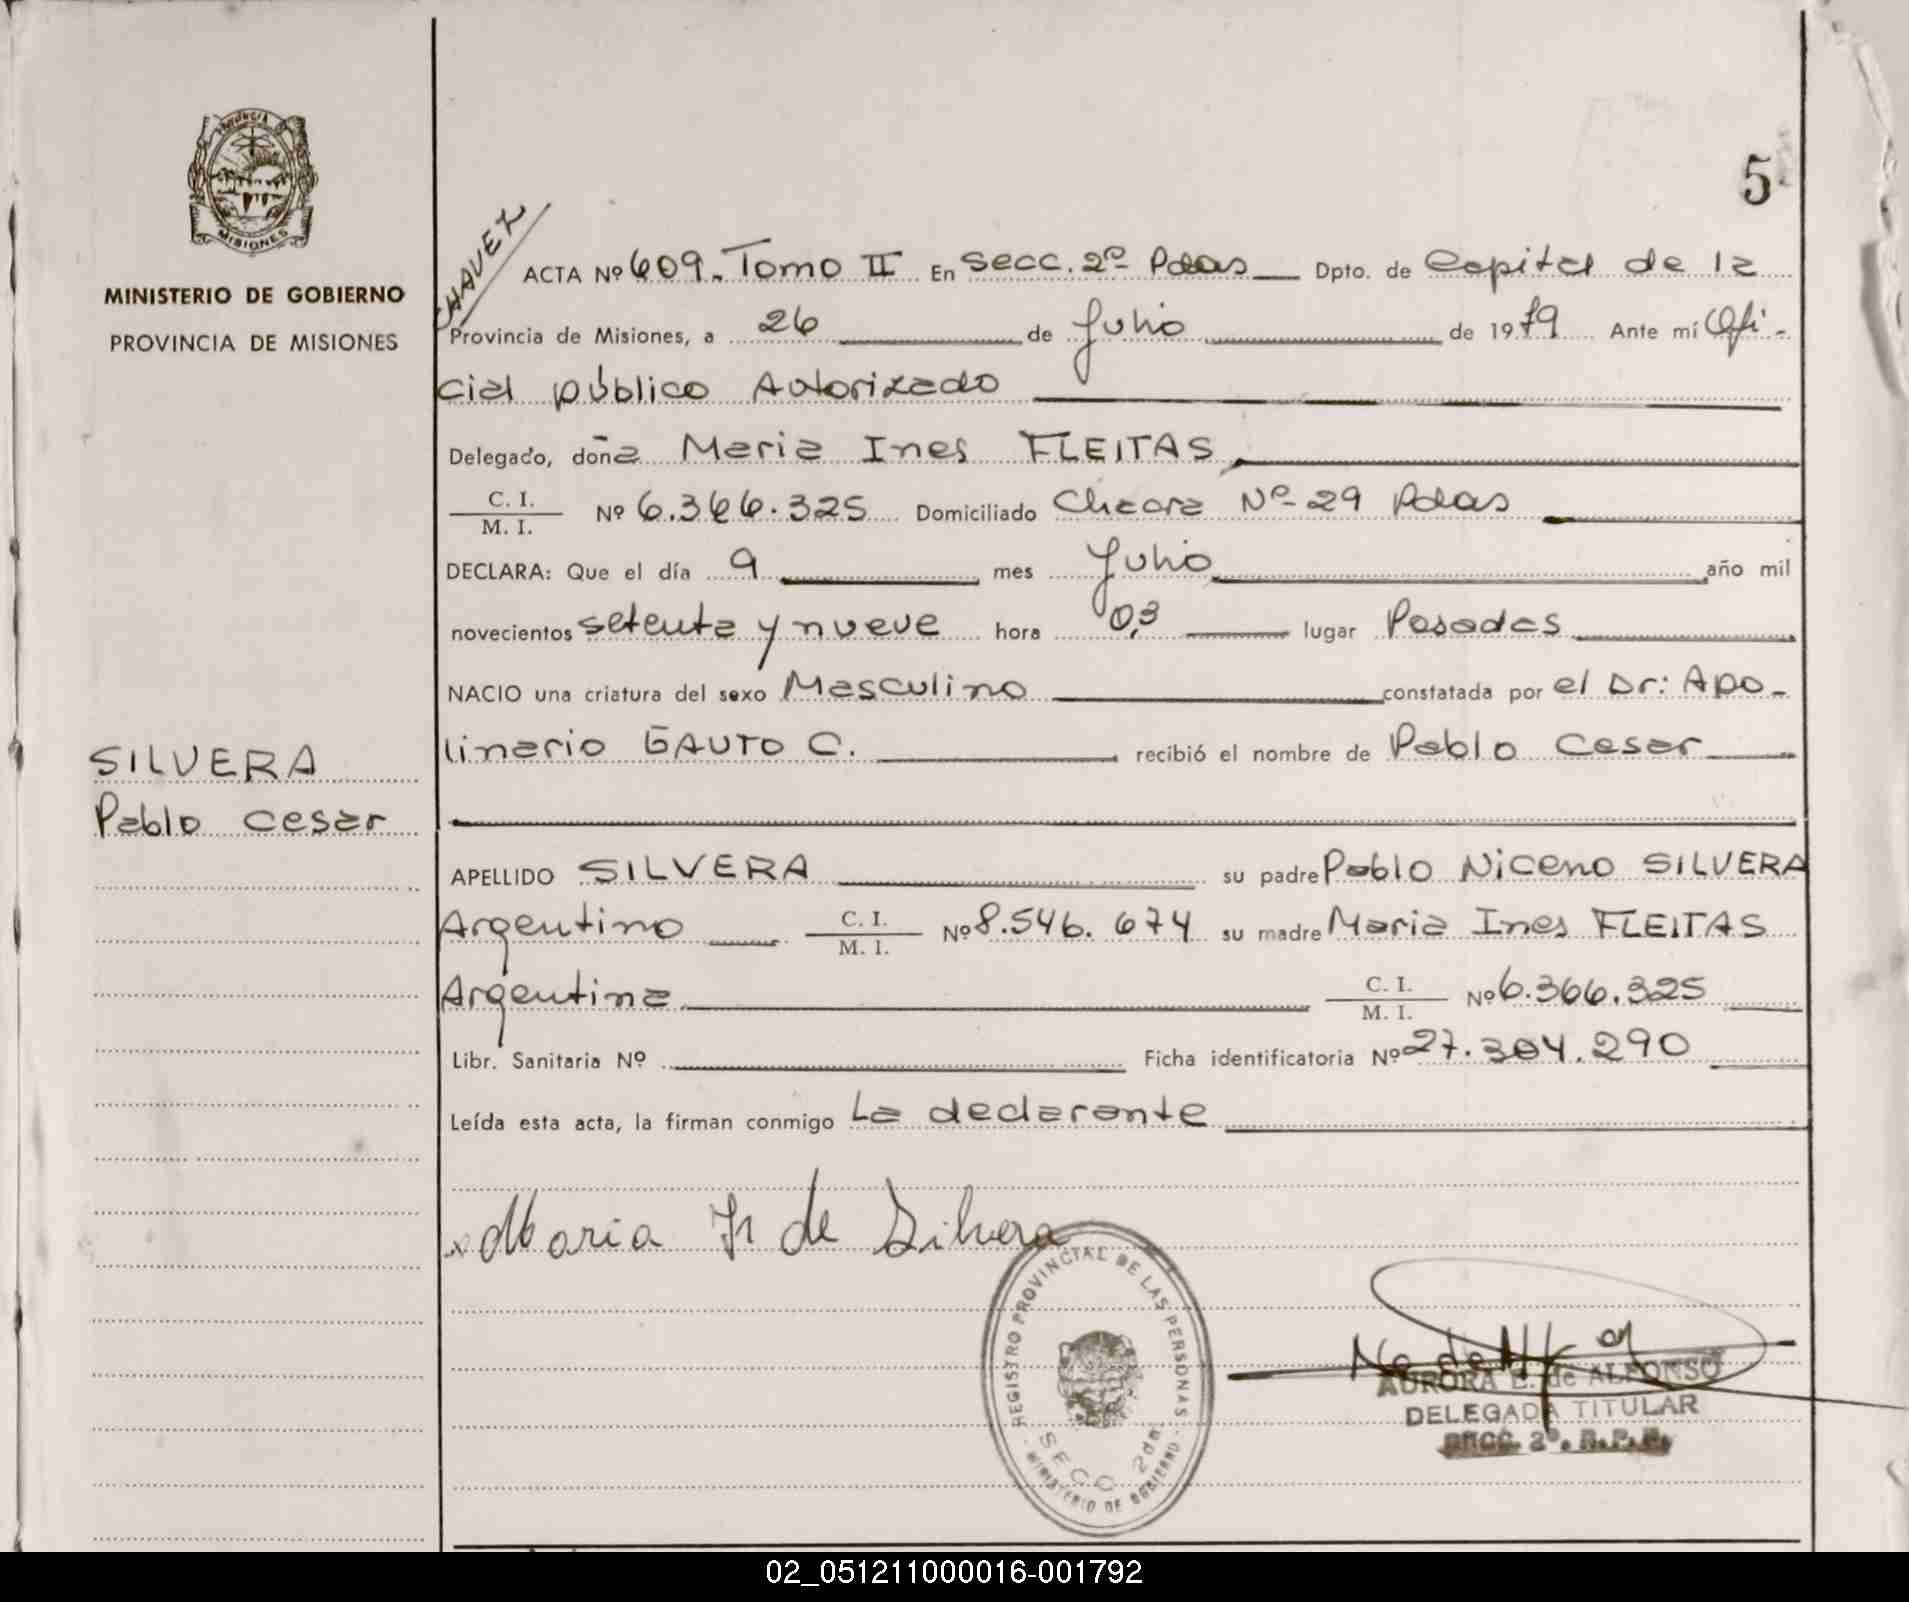 PROVINCIA
MISIONES
MINISTERIO DE GOBIERNO
PROVINCIA DE MISIONES
SILVERA
Pablo Cesar
5
CHAVEZ
ACTA Nº 609. Tomo II En Secc. 2º Pdas Dpto. de Capital de la
Provincia de Misiones, a 26 de Julio de 1979 Ante mí Ofi-
cial público Autorizado
Delegado, doña Maria Ines FLEITAS
C. I.
M. I. Nº 6.366.325 Domiciliado Chacra Nº 29 Pdas
DECLARA: Que el día 9 mes Julio año mil
novecientos setenta y nueve hora 0,3 lugar Posadas
NACIO una criatura del sexo Masculino constatada por el Dr: Apo-
linario GAUTO C. recibió el nombre de Pablo Cesar
APELLIDO SILVERA su padre Pablo Niceno SILVERA
Argentino C. I. M. I. Nº 8.546.674 su madre Maria Ines FLEITAS
Argentina C. I. M. I. Nº 6.366.325
Libr. Sanitaria Nº Ficha identificatoria Nº 27.304.290
Leída esta acta, la firman conmigo La declarante
Maria de Silvera
REGISTRO PROVINCIAL DE LAS PERSONAS
SECC. 2da.
MINISTERIO DE GOBIERNO
AURORA E. de ALFONSO
DELEGADA TITULAR
SECC. 2º. R.P.P.
02_051211000016-001792